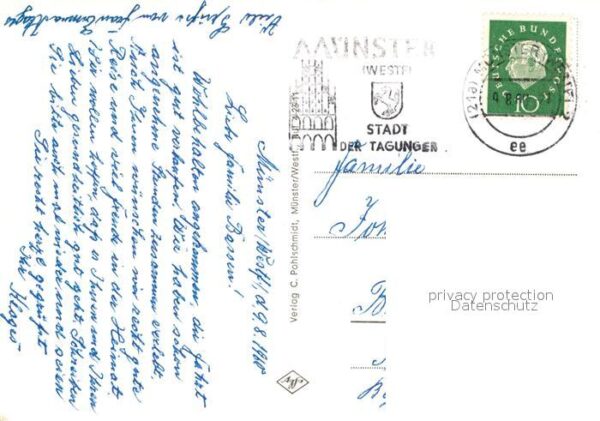 Viele Grüße von
Münster/Westf., d. 9.8.1960
Liebe Familie Bassen!
Wohlbehalten angekommen, die Fahrt
ist gut verlaufen. Wir haben schon
angenehme Stunden zusammen verlebt.
Auch Ihnen wünschen wir recht gute
Reise und viel Freude in der Heimat.
Wir wollen hoffen, daß es Ihnen und Ihren
Lieben gesundheitlich gut geht. Schreiben
Sie bitte auch mal wieder
Sie recht herzl. gegrüßt
Ihr
Verlag C. Pohlschmidt, Münster/Westf.
MÜNSTER
(WESTF)
STADT
DER TAGUNGEN
DEUTSCHE BUNDESPOST
10
ee
Familie
privacy protection
Datenschutz